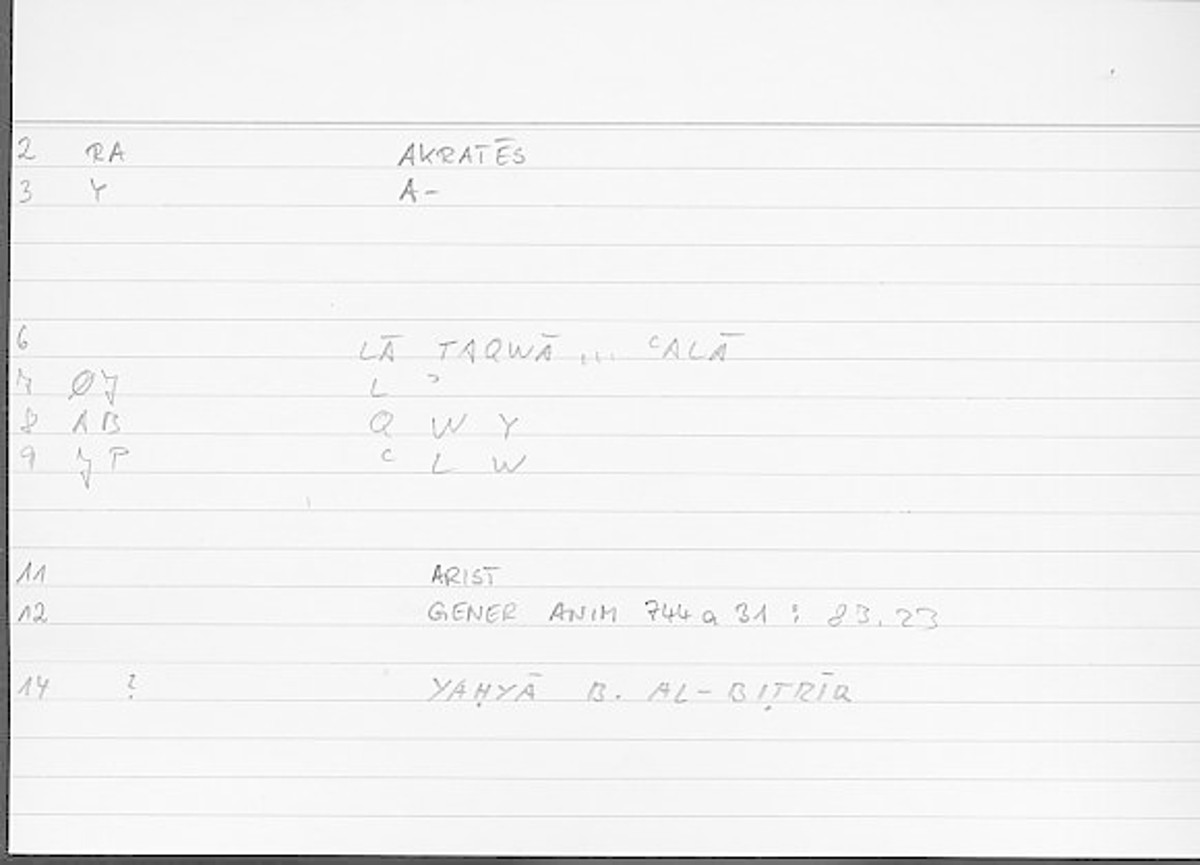 2 RA AKRATĒS
3 Y A-
6 LĀ TAQWĀ ... ʿALĀ
7 ØJ L ʾ
8 AB Q W Y
9 JP ʿ L W
11 ARIST
12 GENER ANIM 744a 31 : 83.23
14 ? YAḤYĀ B. AL-BIṬRĪQ